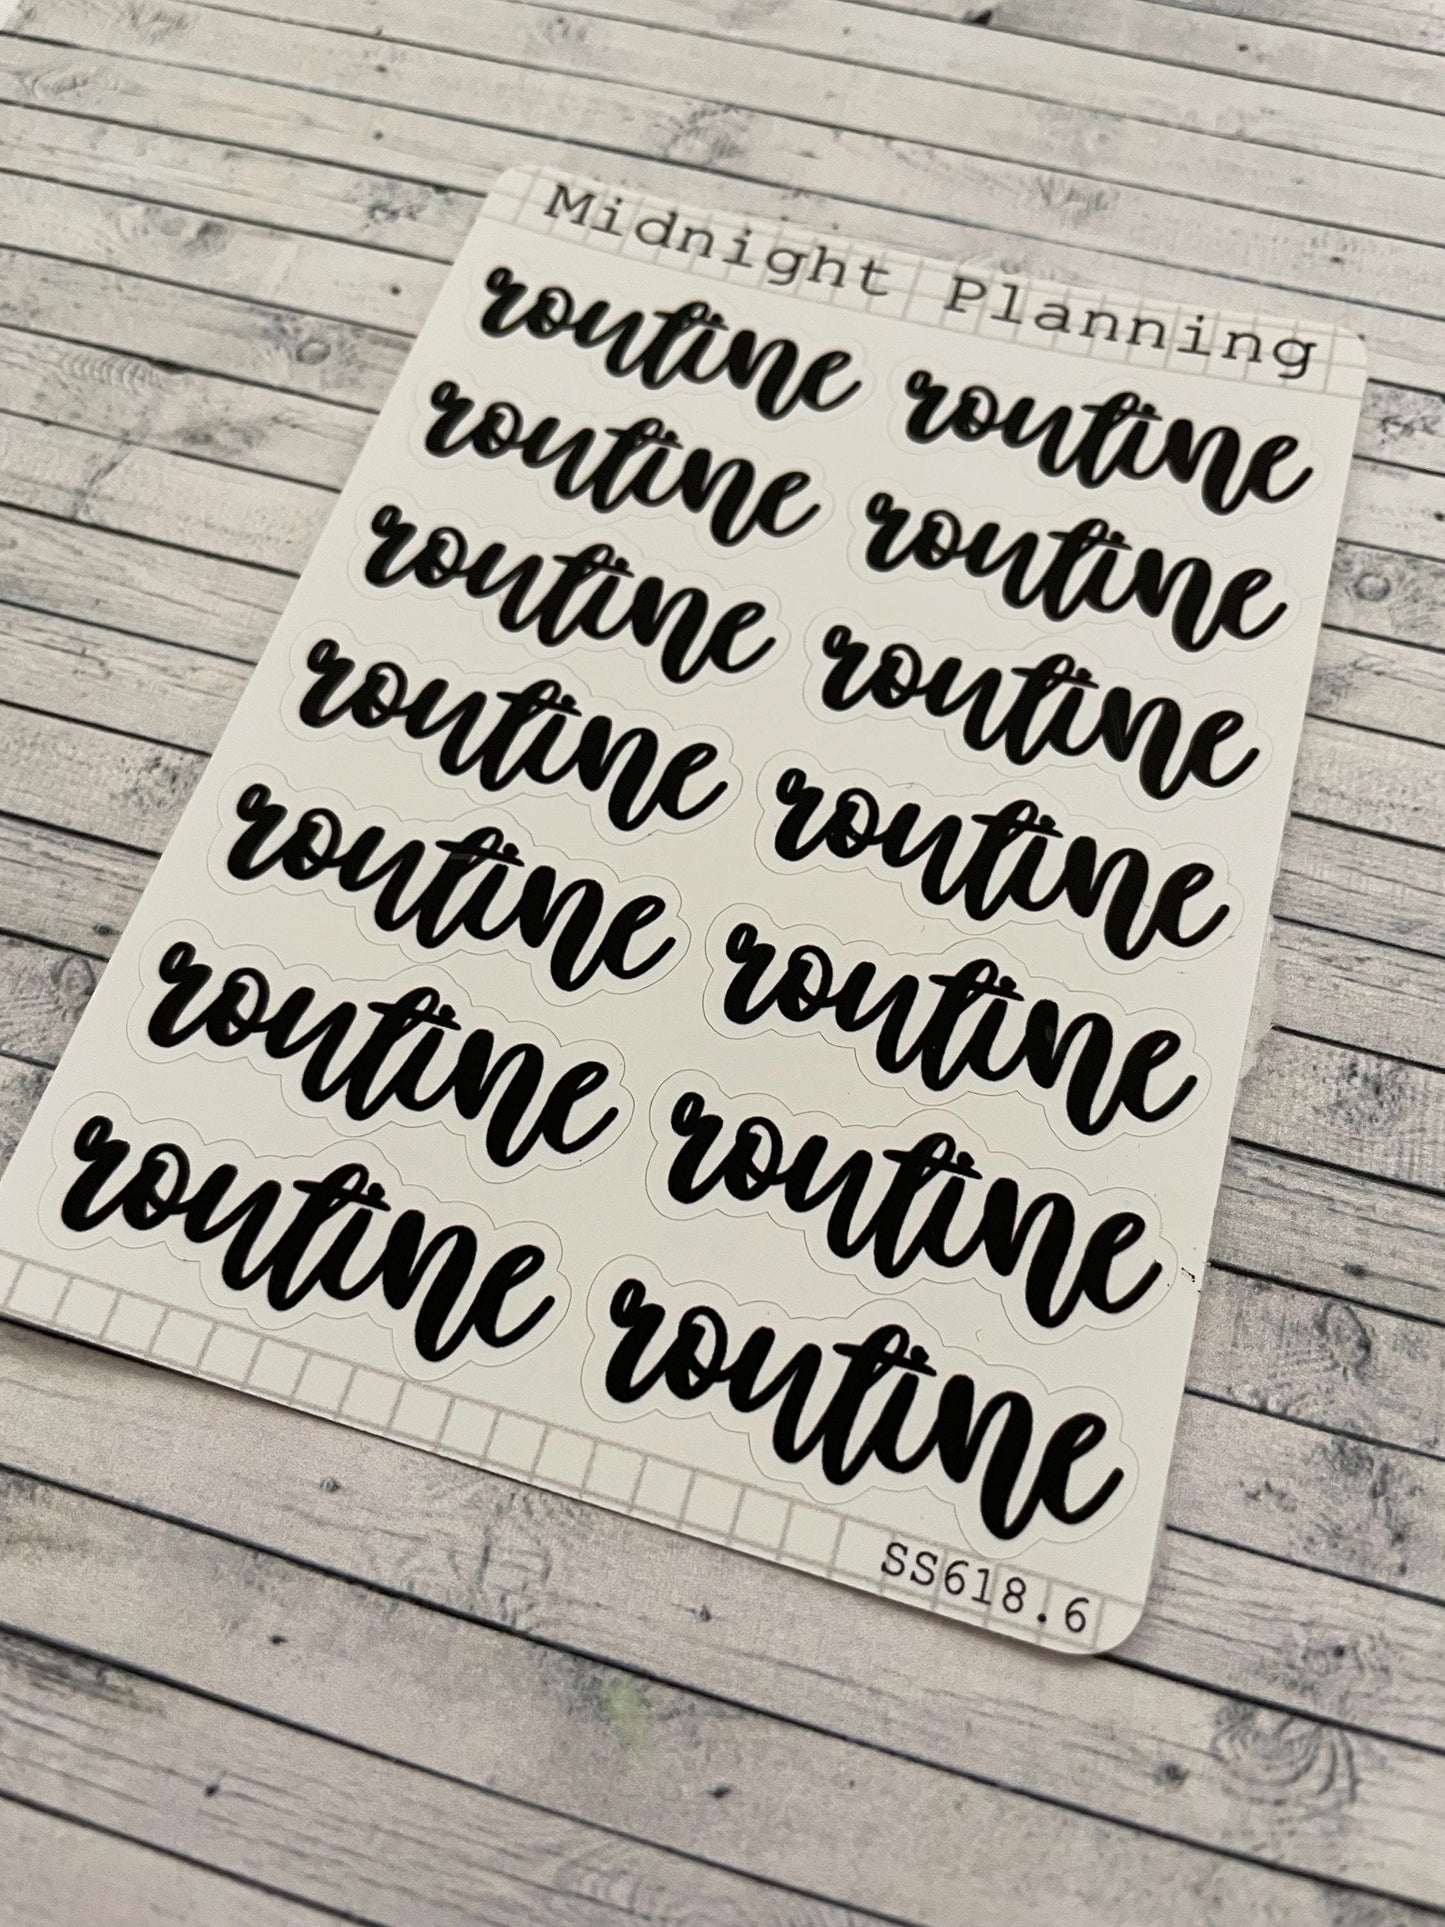 Midnight Planning
routine routine
routine routine
routine routine
routine routine
routine routine
routine routine
routine routine
SS618.6